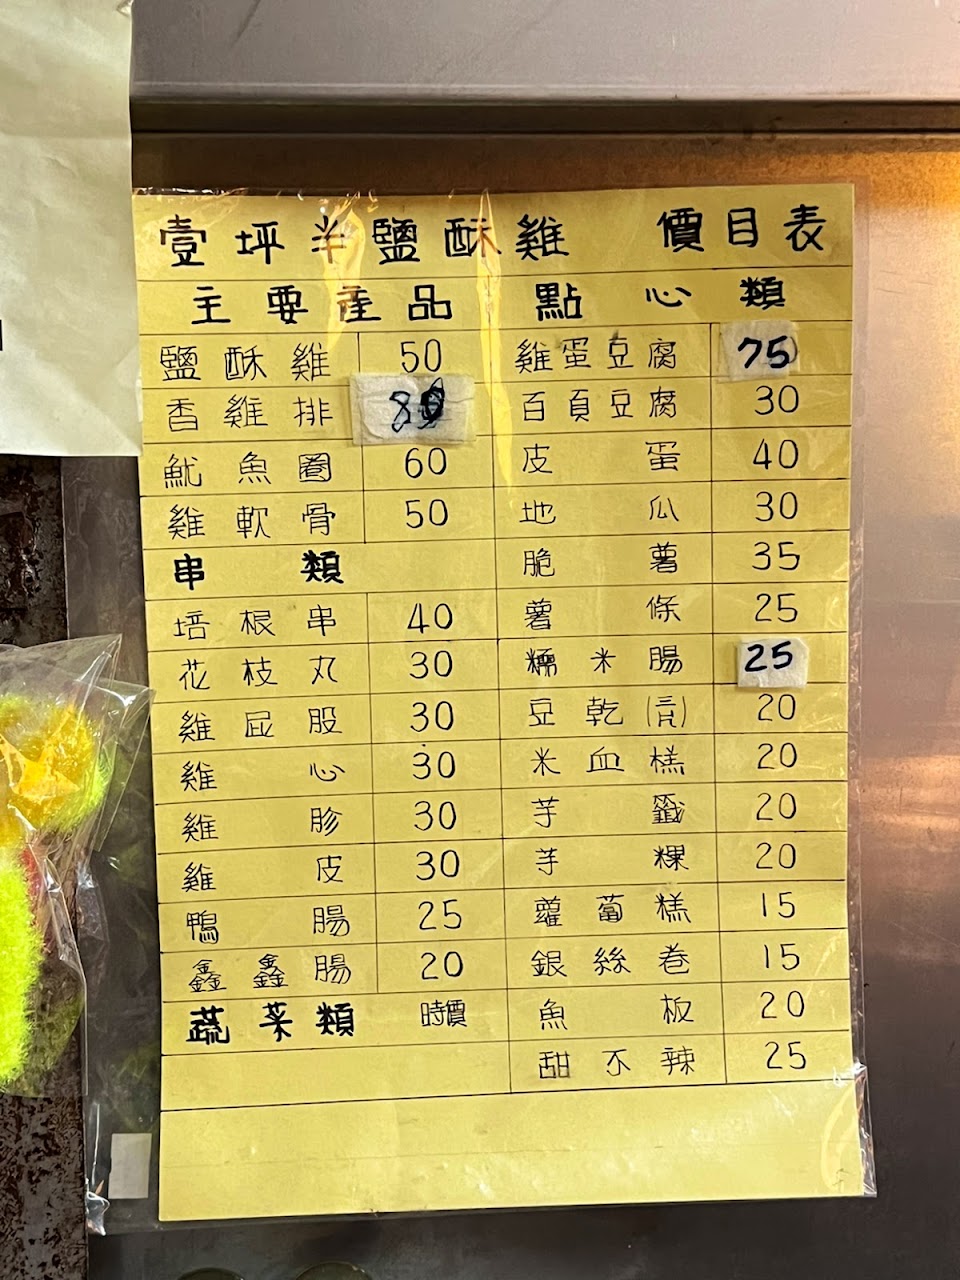 壹坪半鹽酥雞 價目表
主要產品
鹽酥雞 50
香雞排
魷魚圈 60
雞軟骨 50
串類
培根串 40
花枝丸 30
雞屁股 30
雞心 30
雞胗 30
雞皮 30
鴨腸 25
鑫鑫腸 20
蔬菜類 時價
點心類
雞蛋豆腐 75
百頁豆腐 30
皮蛋 40
地瓜 30
脆薯 35
薯條 25
糯米腸 25
豆乾(三片) 20
米血糕 20
芋籤 20
芋粿 20
蘿蔔糕 15
銀絲卷 15
魚板 20
甜不辣 25